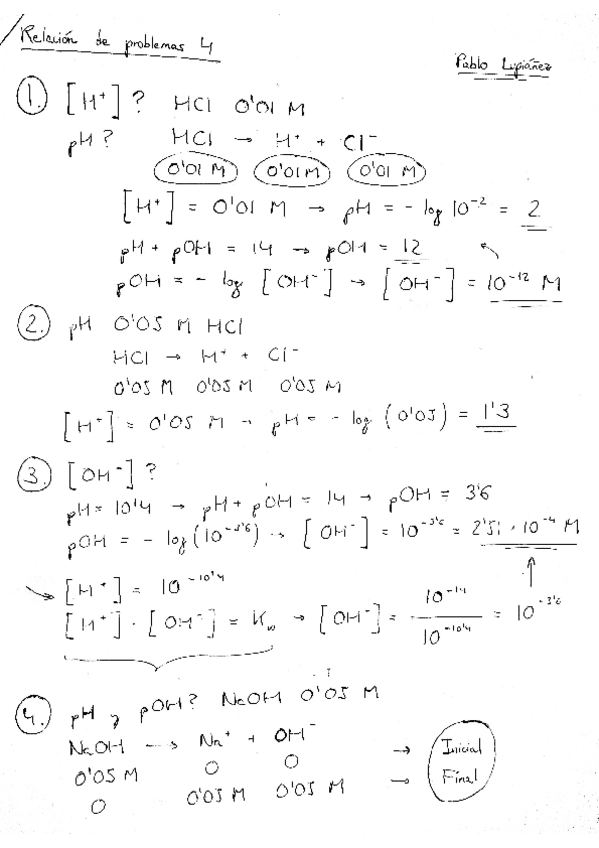 Relación de problemas 4
Pablo Lupiáñez
1. [H⁺]? HCl 0'01 M
pH? HCl → H⁺ + Cl⁻
0'01 M 0'01 M 0'01 M
[H⁺] = 0'01 M → pH = - log 10⁻² = 2
pH + pOH = 14 → pOH = 12
pOH = - log [OH⁻] → [OH⁻] = 10⁻¹² M
2. pH 0'05 M HCl
HCl → H⁺ + Cl⁻
0'05 M 0'05 M 0'05 M
[H⁺] = 0'05 M → pH = - log (0'05) = 1'3
3. [OH⁻]?
pH = 10'4 → pH + pOH = 14 → pOH = 3'6
pOH = - log (10^-3'6) → [OH⁻] = 10^-3'6 = 2'51 · 10⁻⁴ M
[H⁺] = 10^-10'4
[H⁺] · [OH⁻] = Kw → [OH⁻] = 10⁻¹⁴ / 10^-10'4 = 10^-3'6
4. pH y pOH? NaOH 0'05 M
NaOH → Na⁺ + OH⁻
0'05 M 0 0 → Inicial
0 0'05 M 0'05 M → Final